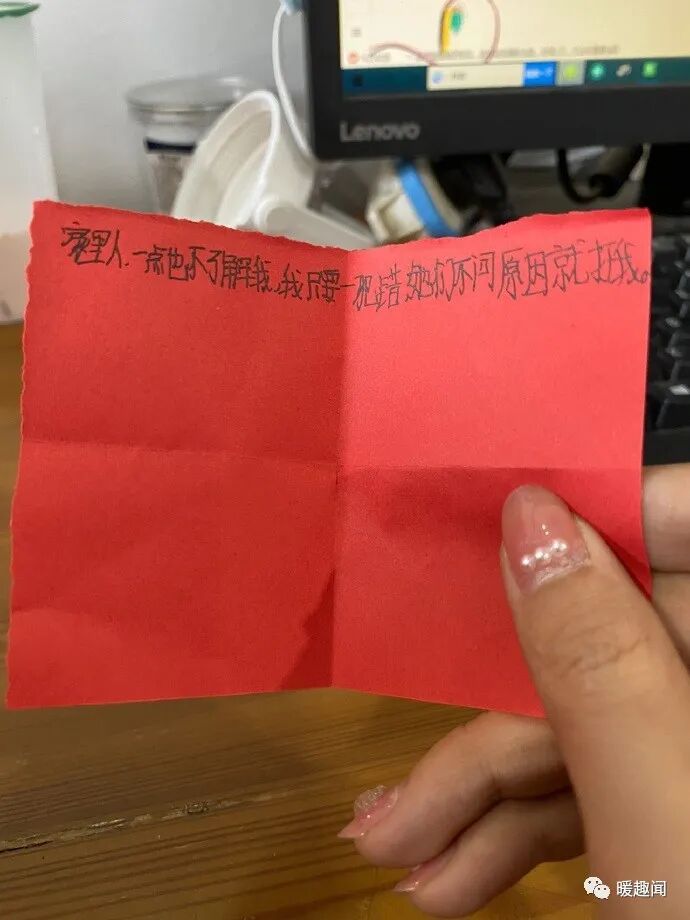 Lenovo
家里人一点也不了解我，我只要一犯错她们不问原因就打我。
暖趣闻